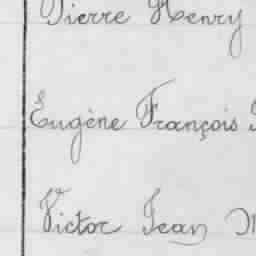 Pierre Henry
Eugène François
Victor Jean